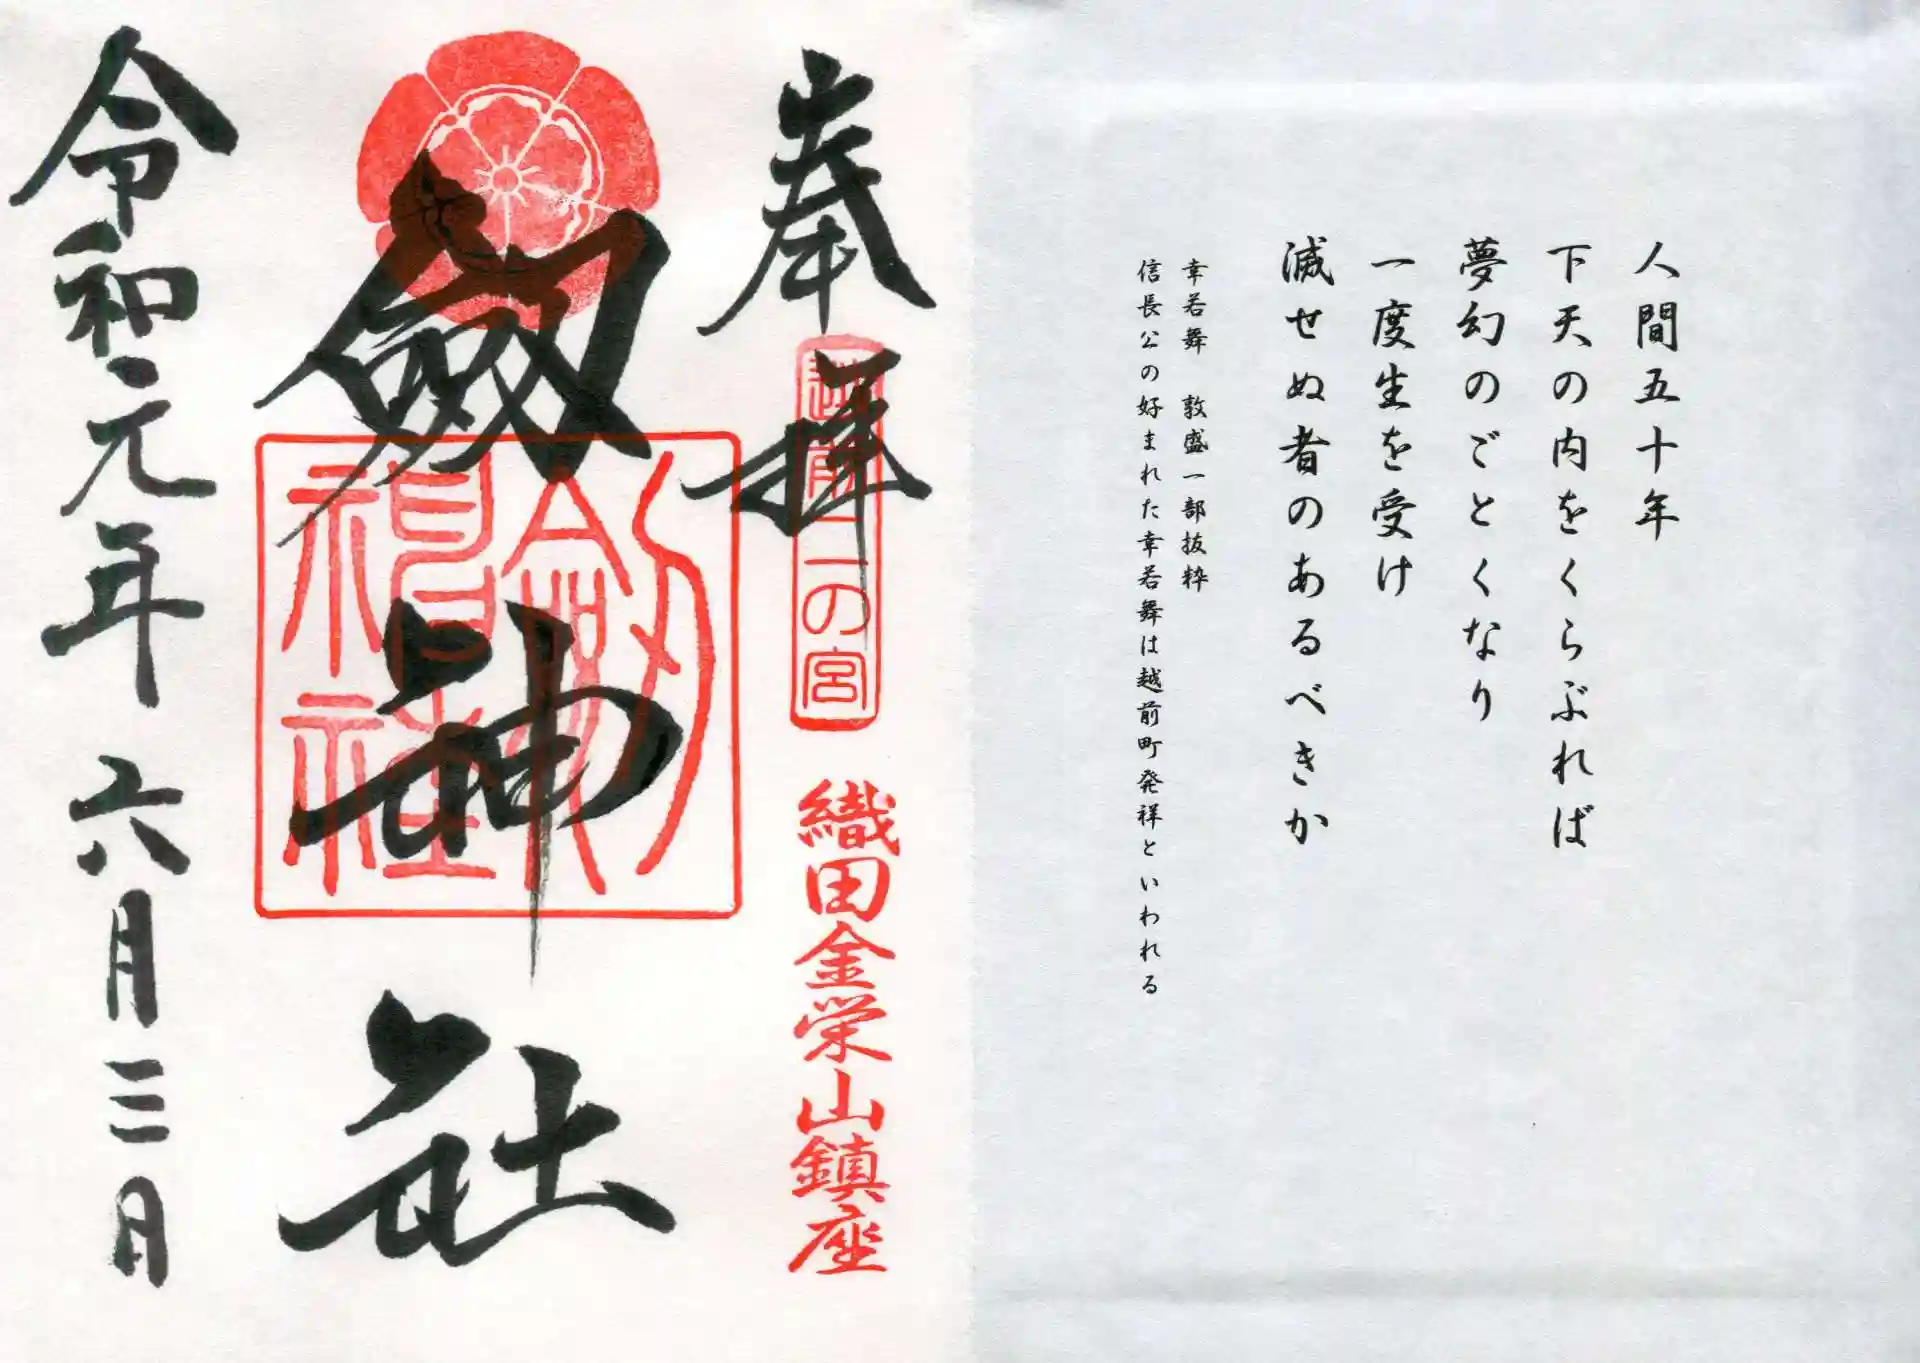 人間五十年
下天の内をくらぶれば
夢幻のごとくなり
一度生を受け
滅せぬ者のあるべきか
幸若舞 敦盛一部抜粋
信長公の好まれた幸若舞は越前町発祥といわれる
奉拝
越前二の宮
織田金栄山鎮座
劔神社
劔神社
令和元年 六月三日